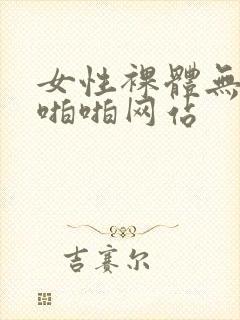 女性裸體無
啪啪网佔
吉赛尔